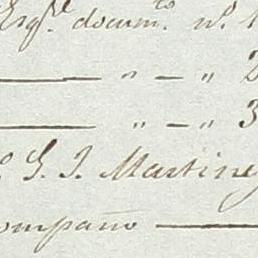 Esqre. documto. no. 1
— " — " 2
— " — " 3
o. G. J. Martinez
ompaño —